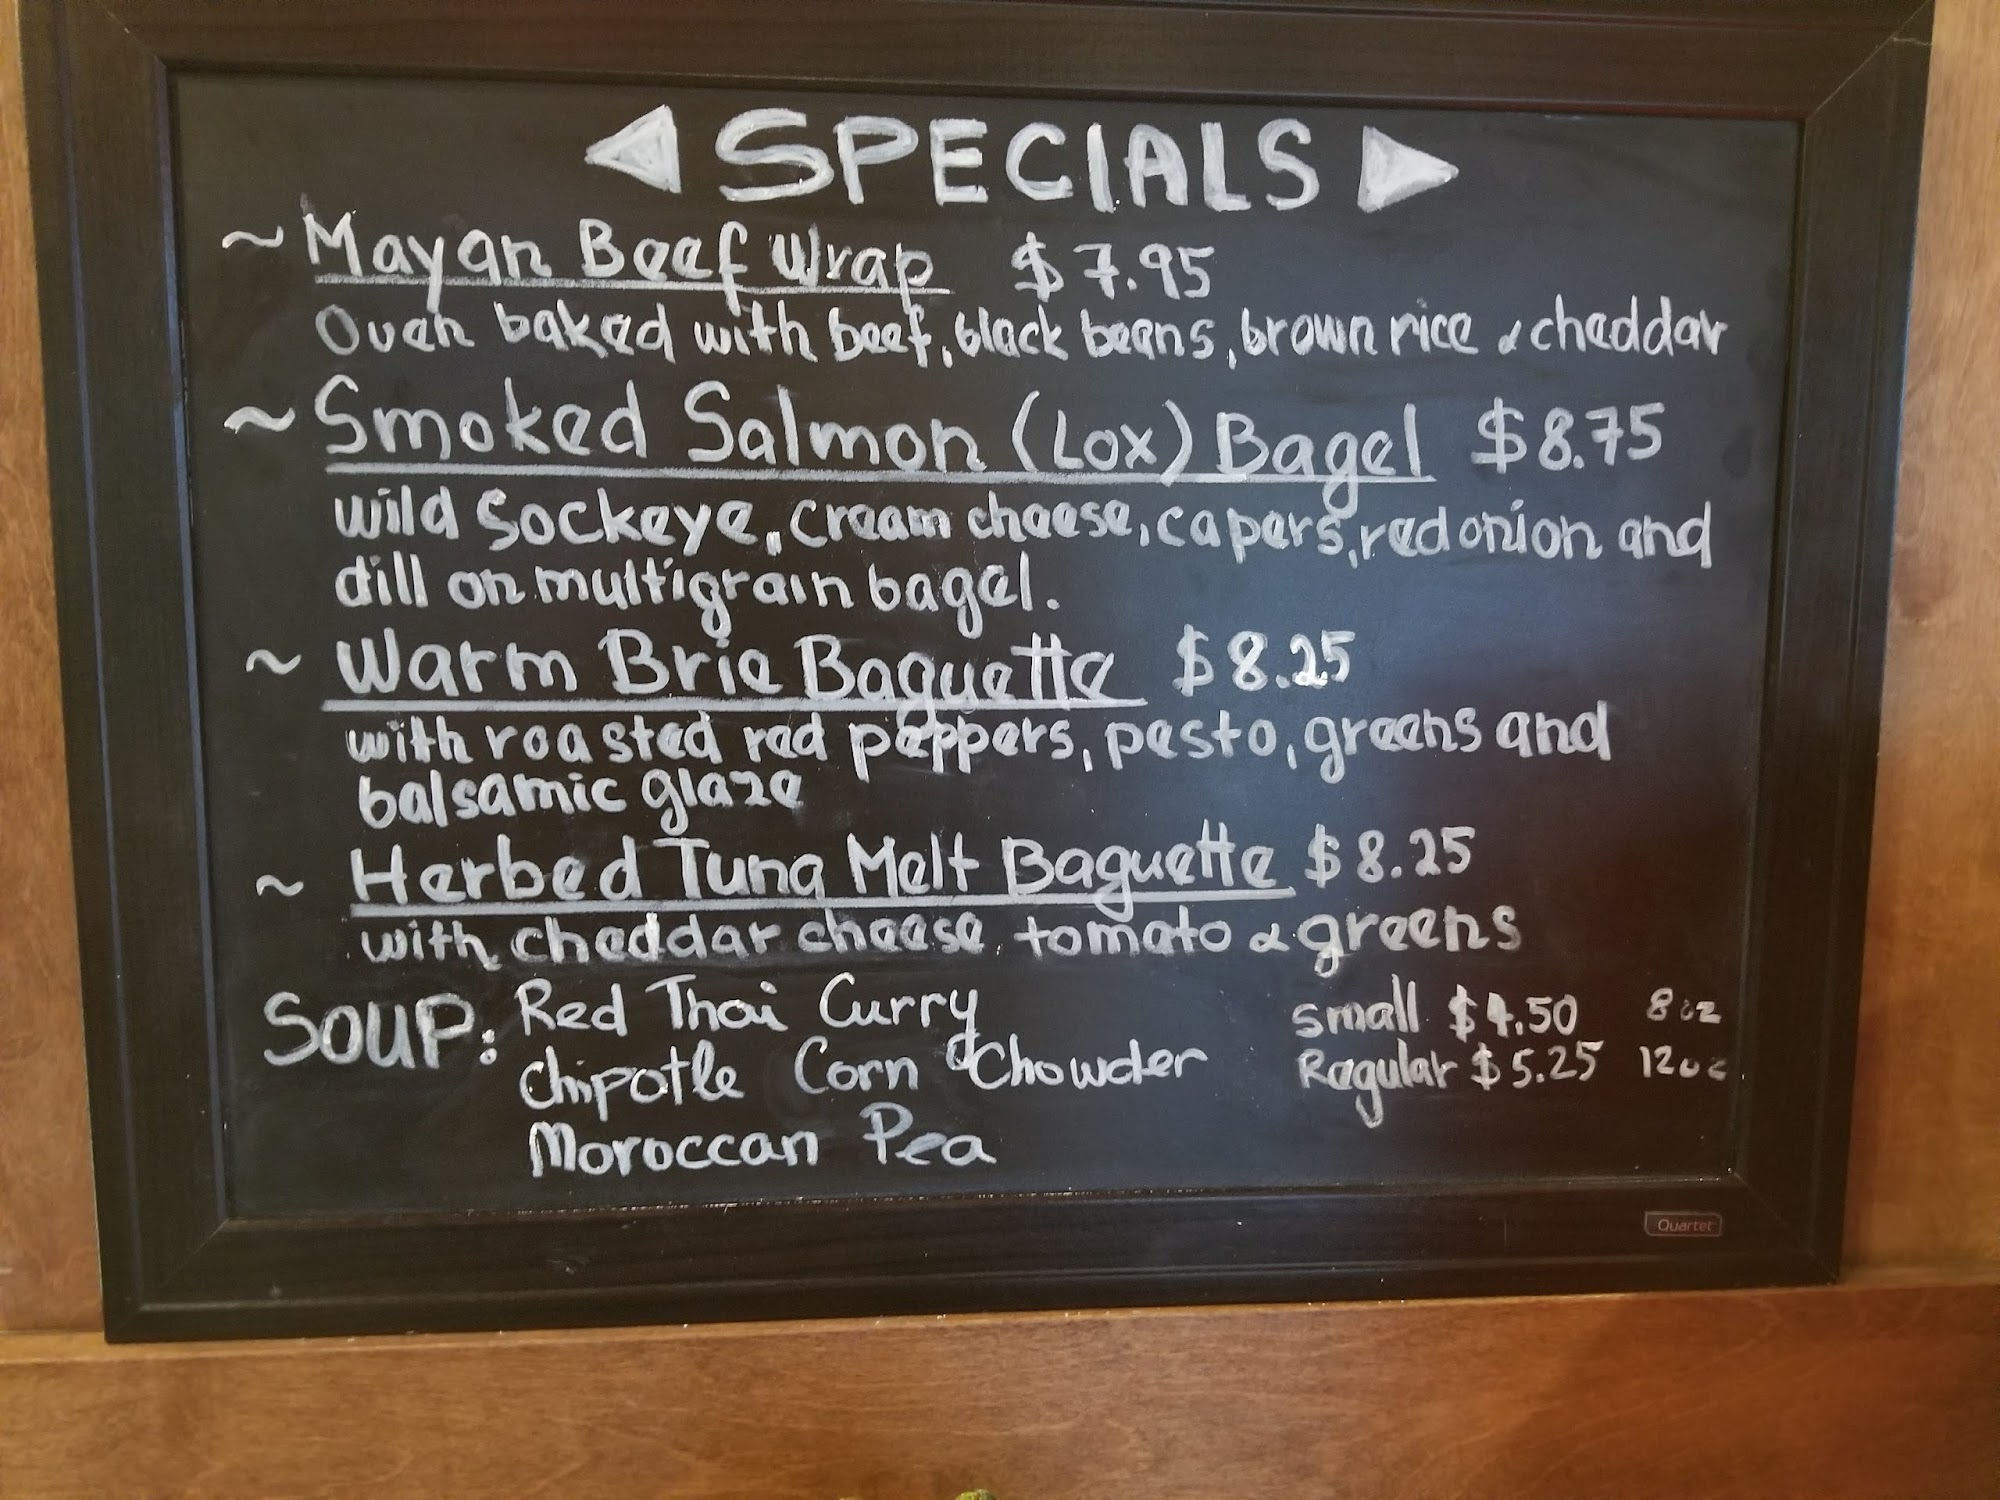 SPECIALS
~ Mayan Beef Wrap $7.95
Oven baked with beef, black beans, brown rice & cheddar
~ Smoked Salmon (Lox) Bagel $8.75
wild sockeye, cream cheese, capers, red onion and
dill on multigrain bagel.
~ Warm Brie Baguette $8.25
with roasted red peppers, pesto, greens and
balsamic glaze
~ Herbed Tuna Melt Baguette $8.25
with cheddar cheese, tomato & greens
SOUP: Red Thai Curry small $4.50 8oz
Chipotle Corn Chowder Regular $5.25 12oz
Moroccan Pea
Quartet